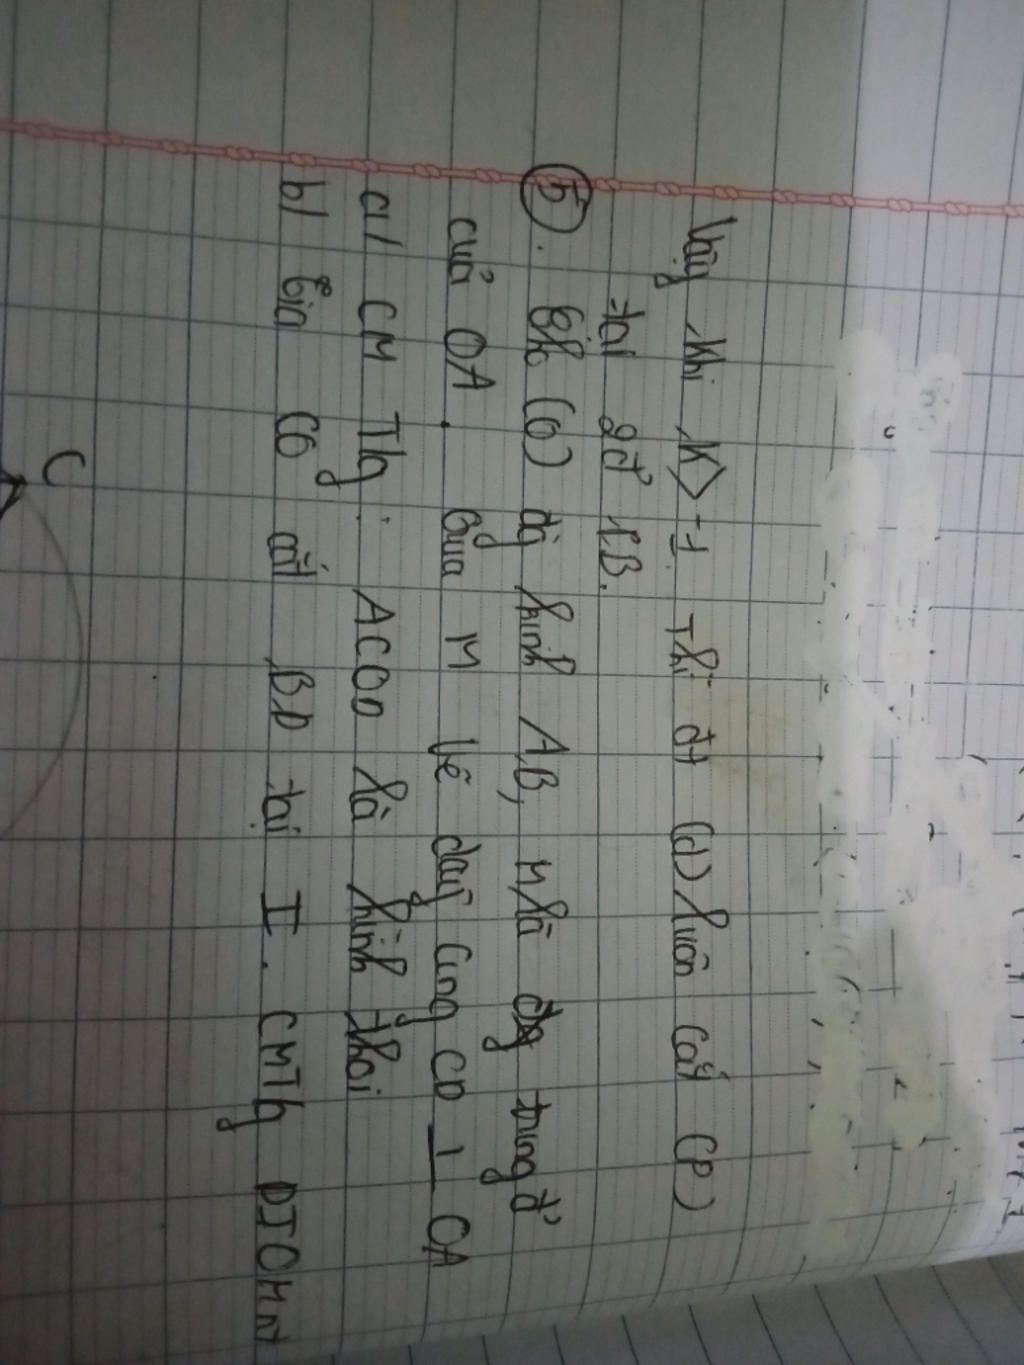 Vậy khi K > -1 Thì đt (d) luôn cắt (P)
tại 2đ' PB.
⑤. Cho (O) đg kính AB, M là trung đ'
của OA. Qua M vẽ dây cung CD ⊥ OA
a/ CM Tg: ACOD là hình thoi
b/ Gia CO cắt BD tại I. CMTg DIOM nt
C